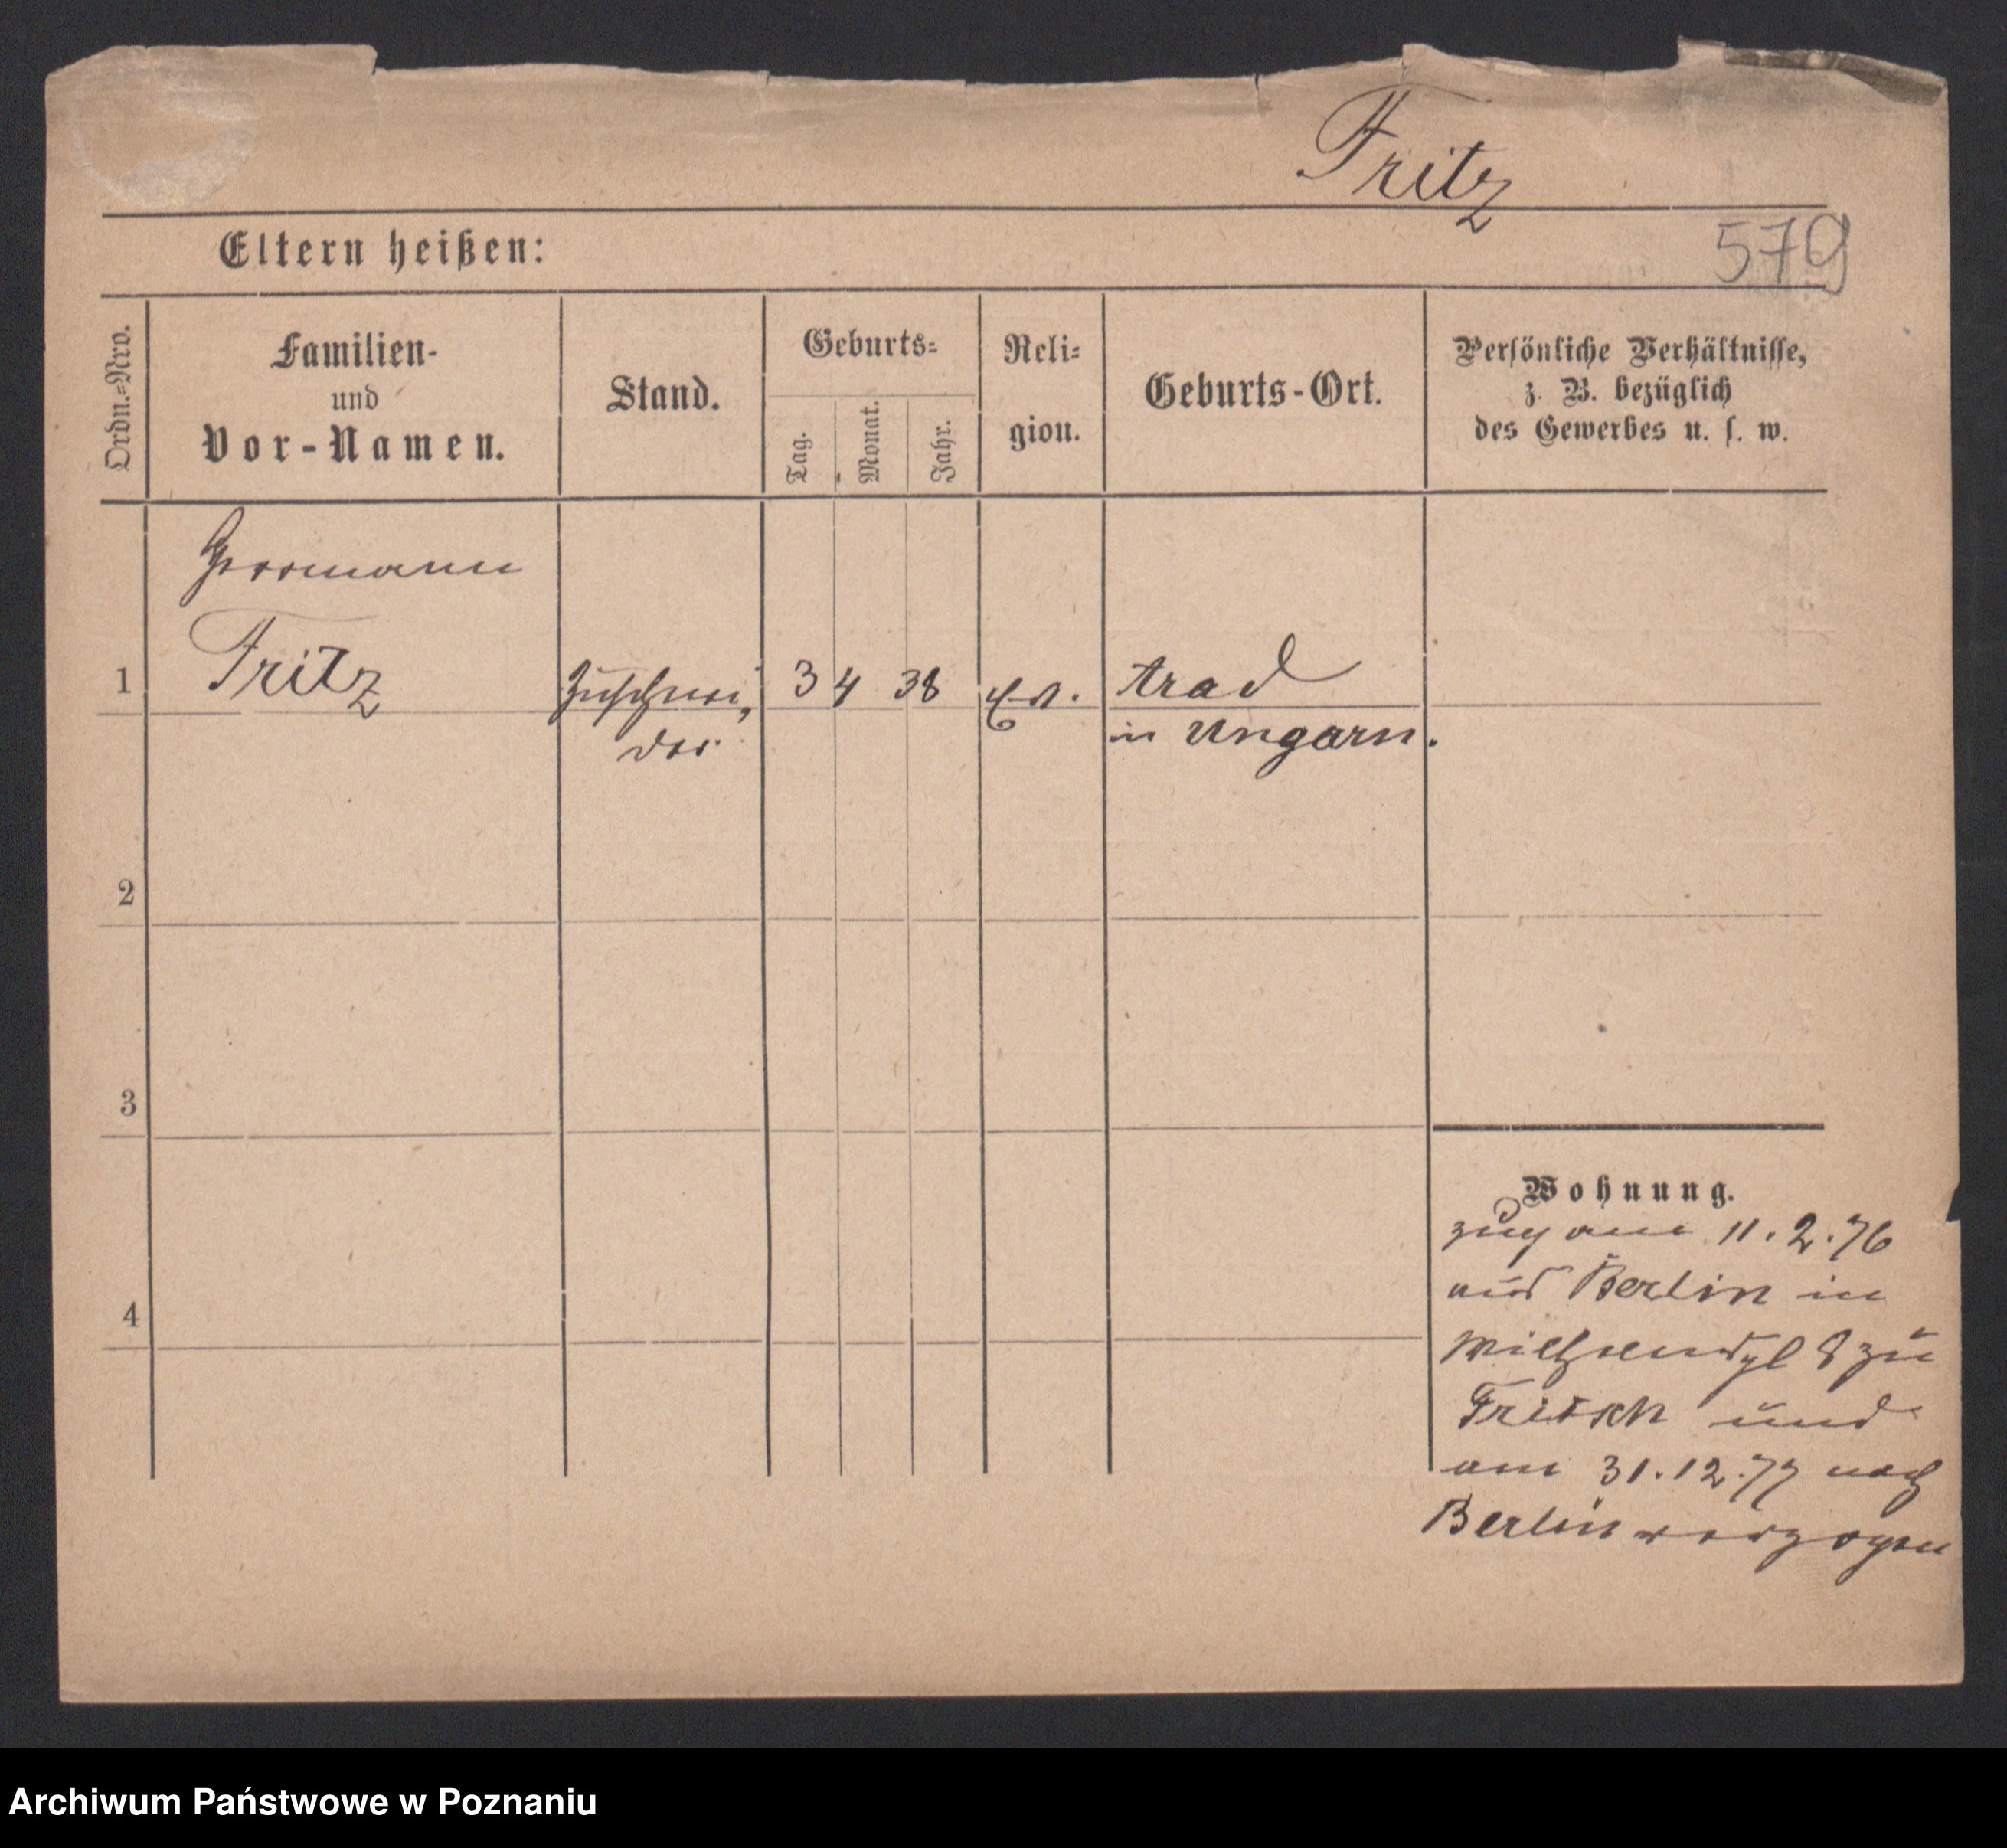 Fritz
Eltern heißen:
579
Ordn.=Nro.
Familien-
und
Vor-Namen.
Stand.
Geburts=
Tag.
Monat.
Jahr.
Reli=
gion.
Geburts-Ort.
Persönliche Verhältnisse,
z. B. bezüglich
des Gewerbes u. s. w.
Herrmann
1 Fritz Zuschnei, 3 4 38 ev. Arad
der in Ungarn.
2
3
4
Wohnung.
zug am 11.2.76
aus Berlin in
8 zu
Fritsch und
am 31.12.77 nach
Berlin verzogen
Archiwum Państwowe w Poznaniu